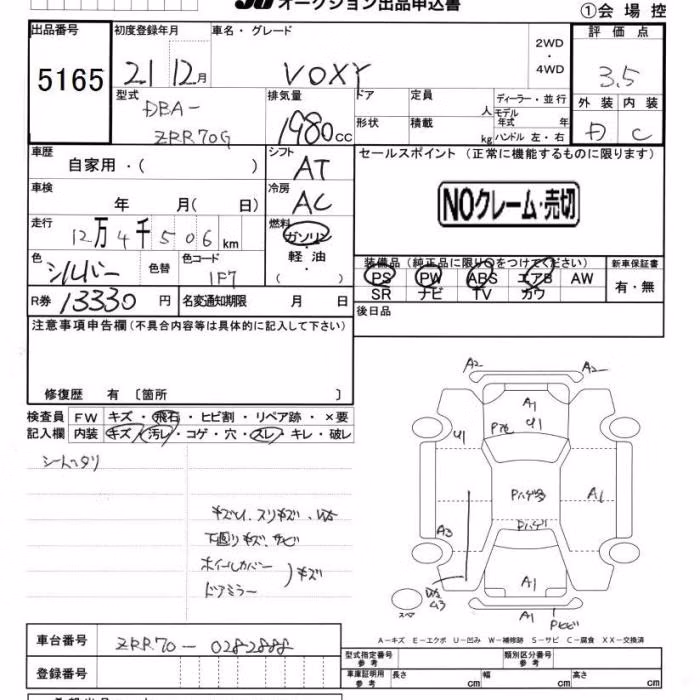 オークション出品申込書
①会場控
出品番号
5165
初度登録年月
21 12月
車名・グレード
VOXY
2WD
・
4WD
評価点
3.5
外装 内装
D C
型式
DBA-
ZRR70G
排気量
1980cc
ドア 定員 人
ディーラー・並行
モデル年式 年
形状 積載 kg
ハンドル 左・右
車歴
自家用・( )
シフト
AT
セールスポイント (正常に機能するものに限ります)
NOクレーム・売切
車検
年 月( 日)
冷房
AC
走行
12万4千506km
燃料
ガソリン
軽油
( )
色
シルバー
色替
色コード
1F7
装備品(純正品に限り○をつけてください)
PS PW ABS エアB AW
SR ナビ TV カワ
新車保証書
有・無
R券 13330円
名変通知期限 月 日
後日品
注意事項申告欄(不具合内容等は具体的に記入して下さい)
修復歴 有〔箇所 〕
検査員
記入欄
FW キズ・飛石・ヒビ割・リペア跡・×要
内装 キズ・汚レ・コゲ・穴・スレ・キレ・破レ
下廻りキズ、サビ
ホイールカバー
ドアミラー
)キズ
A2 A2
A1
U1
U1
A1
A3
A1
A1
スペア
A-キズ E-エクボ U-凹み W-補修跡 S-サビ C-腐食 XX-交換済
車台番号
ZRR70-0282888
登録番号
型式指定番号
参考
類別区分番号
参考
車庫証明用
参考
長さ cm 幅 cm 高さ cm